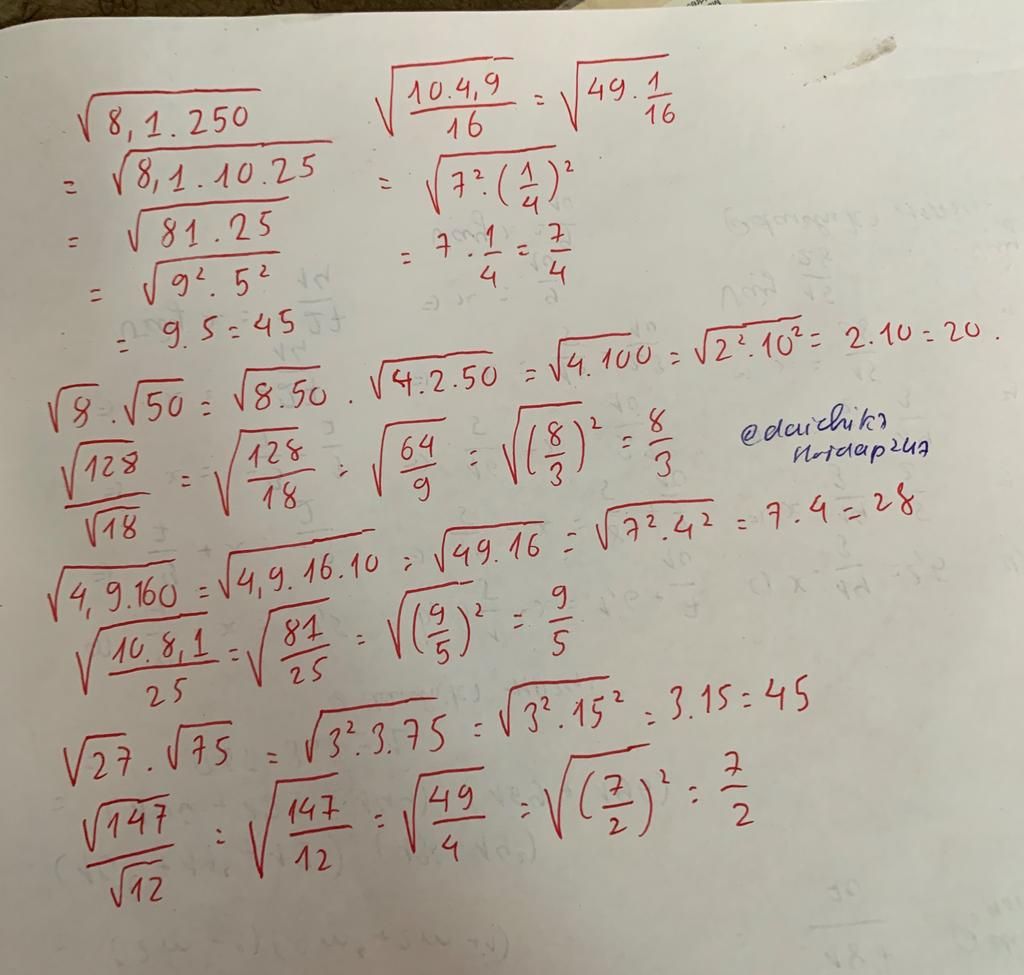 √(8,1.250)
= √(8,1.10.25)
= √(81.25)
= √(9².5²)
= 9.5 = 45
√((10.4,9)/16) = √(49.1/16)
= √(7².(1/4)²)
= 7.1/4 = 7/4
√8.√50 = √(8.50) . √(4.2.50) = √(4.100) = √(2².10²) = 2.10 = 20.
√128/√18 = √(128/18) = √(64/9) = √((8/3)²) = 8/3
@daichik3
Hoidap247
√(4,9.160) = √(4,9.16.10) = √(49.16) = √(7².4²) = 7.4 = 28
√((10.8,1)/25) = √(81/25) = √((9/5)²) = 9/5
√27.√75 = √(3².3.75) = √(3².15²) = 3.15 = 45
√147/√12 = √(147/12) = √(49/4) = √((7/2)²) = 7/2